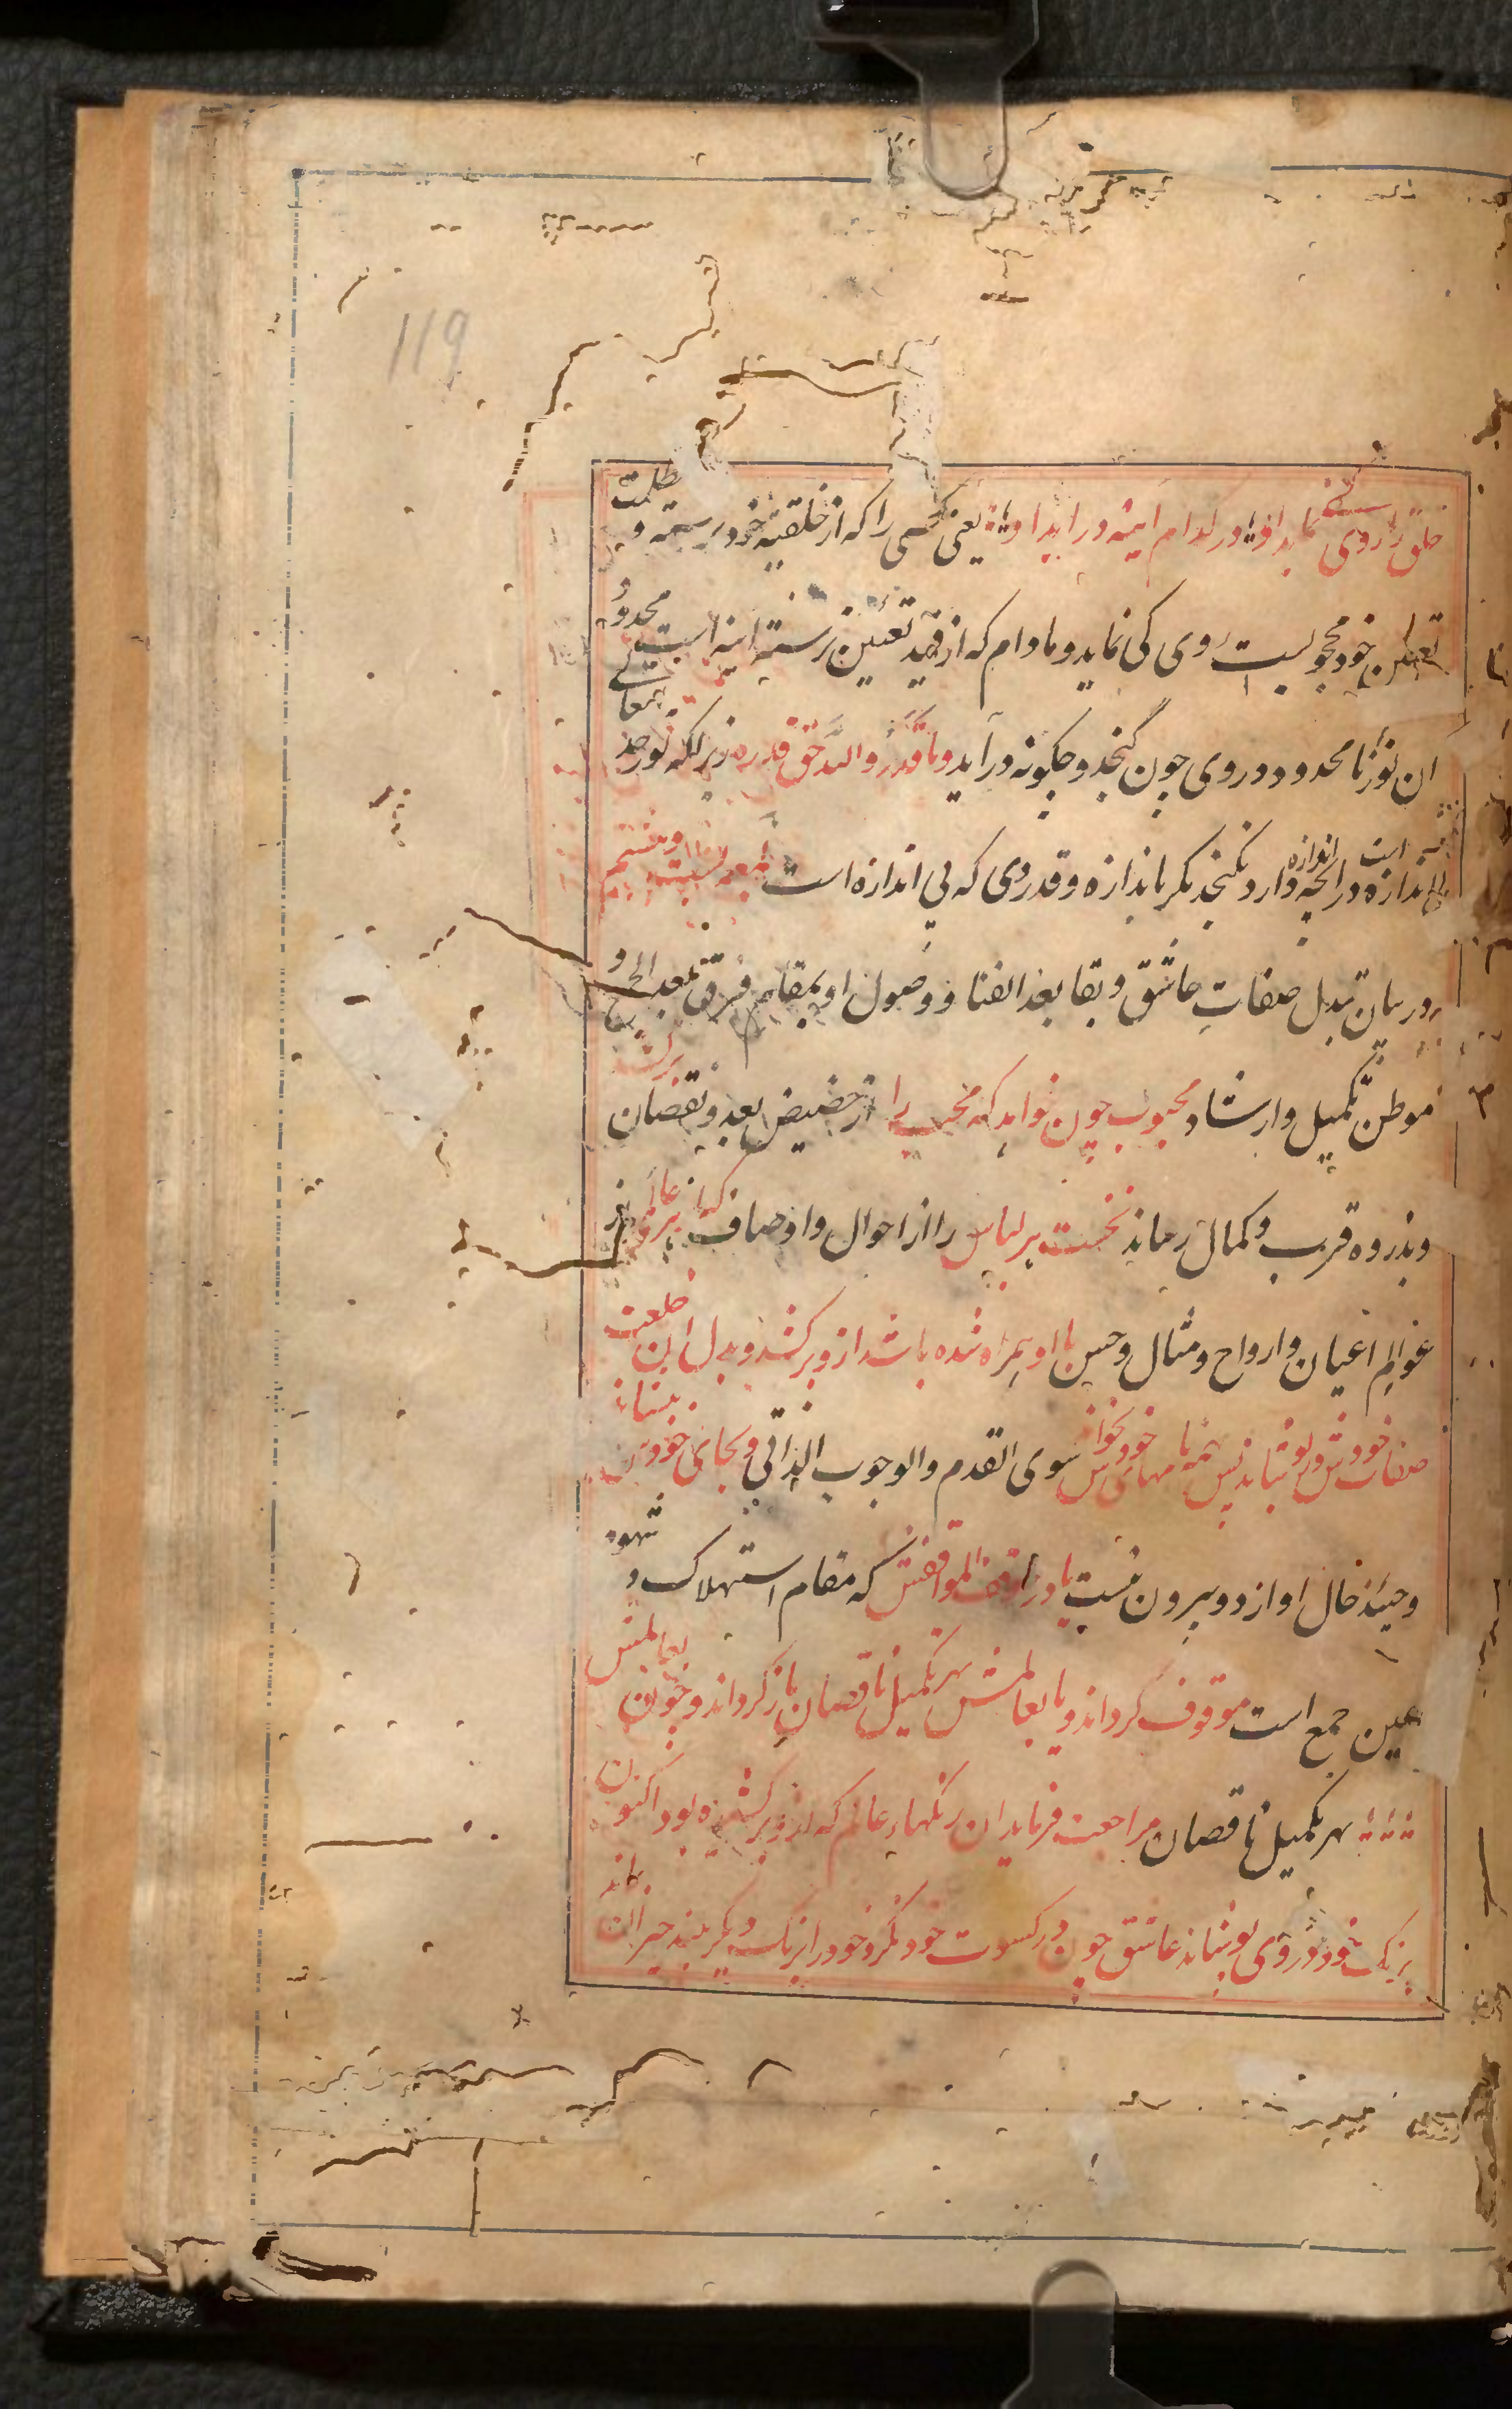 119
خلق را روی کی نماید او در کدام آینه در آید او یعنی کسی را که از خلقیة خود نرسته و بظلمت
تعین خود محجوبست روی کی نماید و مادام که از قید تعین نرسته آینه ایست محدود
آن نور نامحدود در وی چون گنجد و چگونه درآید وما قدروا الله حق قدره زیراکه نور حد
بی اندازه است در آنچه اندازه دارد نگنجد مگر باندازه و قدر وی که بی اندازه است لمعه بیست و هفتم
در بیان تبدل صفات عاشق و بقا بعد الفنا و وصول او بمقام فرق بعد الجمع و
موطن تکمیل و ارشاد محبوب چون خواهد که محب را از حضیض بعد و نقصان برکشد
و بذروه قرب و کمال رساند نخست هر لباس را از احوال و اوصاف کز هر عالم از
عوالم اعیان و ارواح و مثال و حس با او همراه شده باشد ازو برکشد و بدل آن خلعت
صفات خودش در پوشاند پس همه نامهای خودش بخواند سوی القدم والوجوب الذاتی و بجای خودش بنشاند
و حینئذ حال او از دو بیرون نیست یا در موقف المواقفش که مقام استهلاک و شهود
عین جمع است موقوف گرداند و یا بعالمش بهر تکمیل ناقصان بازگرداند و چون بعالمش
بهر تکمیل ناقصان مراجعت فرماید آن رنگهای عالم که ازو برکشیده بود اکنون
برنگ خود در وی پوشاند عاشق چون در کسوت خود نگرد خود را برنگ دیگر بیند حیران بماند